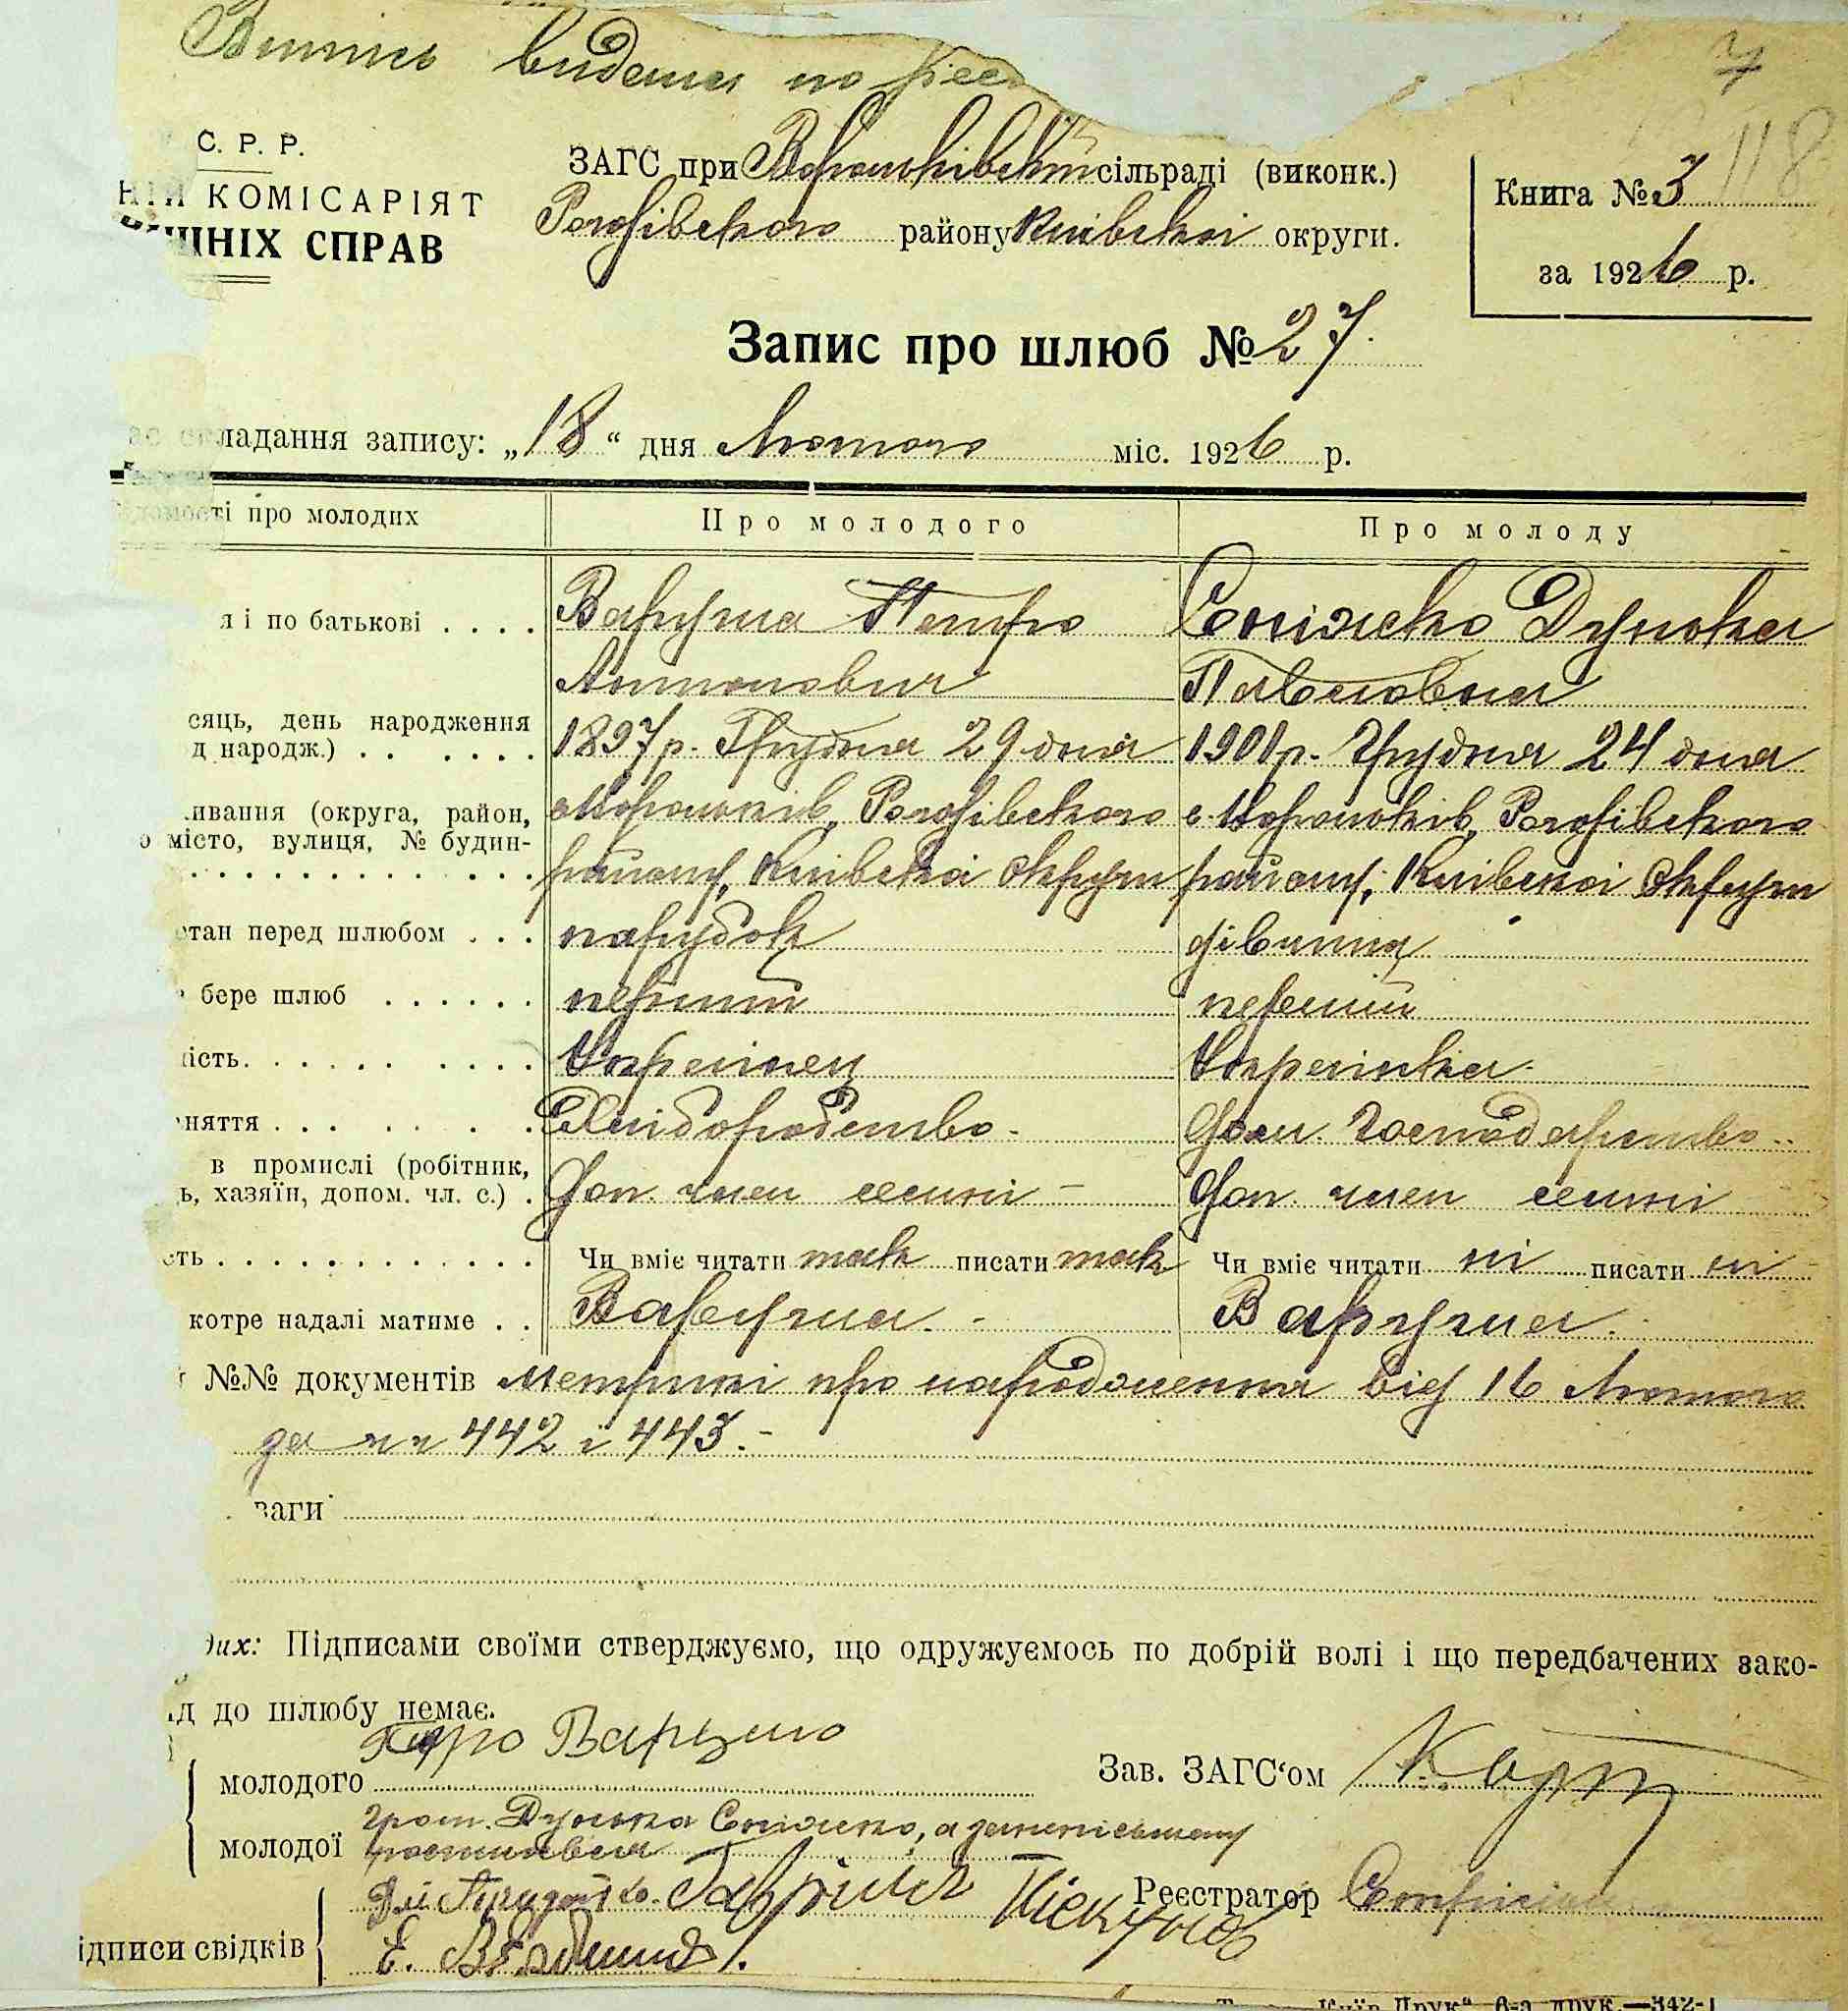 Випись видана по реєс
7
118
С. Р. Р.
НИЙ КОМІСАРІЯТ
ШНІХ СПРАВ
ЗАГС при Вороньківській сільраді (виконк.)
Рогозівського району Київської округи.
Книга № 3
за 1926 р.
Запис про шлюб № 27.
ладання запису: „18“ дня Лютого міс. 1926 р.
домості про молодих
Про молодого
Про молоду
я і по батькові . . . .
Варуша Петро
Антонович
Сніжко Дунька
Павловна
сяць, день народження
д народж.) . . . . . .
1897р. Грудня 29 дня
1901р. Грудня 24 дня
ивання (округа, район,
о місто, вулиця, № будин-
с. Вороньків, Рогозівського
району, Київської округи
с. Вороньків, Рогозівського
району, Київської округи
стан перед шлюбом . . .
парубок
дівчина
бере шлюб . . . . . .
перший
перший
ність. . . . . . . . . . .
Українец
Українка.
няття . . . . . . . .
Хліборобство -
Дом. Господарство -
в промислі (робітник,
ь, хазяїн, допом. чл. с.) .
Доп. член семні -
Доп. член семні
сть . . . . . . . . . . . . .
Чи вміє читати так писати так
Чи вміє читати ні писати ні
котре надалі матиме . .
Варуша. -
Варуша.
№№ документів метрики про народження від 16 Лютого
за чч 442 і 443. -
ваги
их: Підписами своїми стверджуємо, що одружуємось по добрій волі і що передбачених зако-
д до шлюбу немає.
молодого Петро Варуша
Зав. ЗАГС‘ом
молодої Дунька Сніжко, а
Реєстратор
ідписи свідків
Київ Друк“ 6-а друк.—342-1